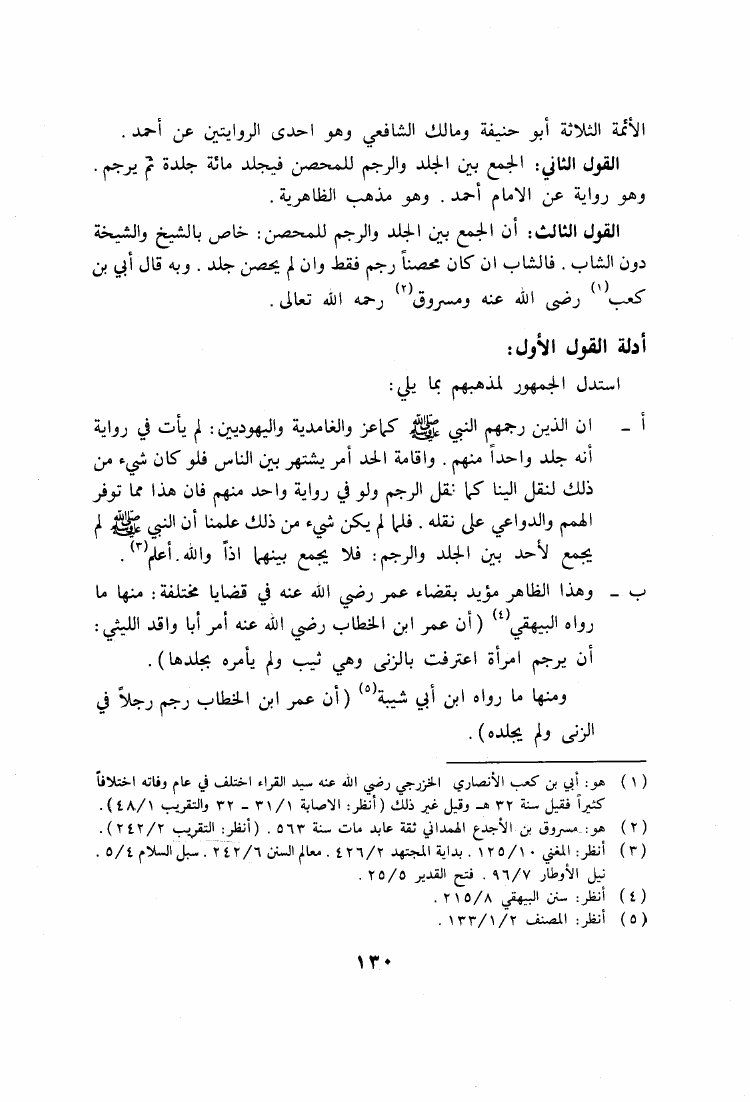 الأئمة الثلاثة أبو حنيفة ومالك الشافعي وهو احدى الروايتين عن أحمد .
القول الثاني: الجمع بين الجلد والرجم للمحصن فيجلد مائة جلدة ثم يرجم .
وهو رواية عن الامام أحمد . وهو مذهب الظاهرية .
القول الثالث: أن الجمع بين الجلد والرجم للمحصن: خاص بالشيخ والشيخة
دون الشاب . فالشاب ان كان محصناً رجم فقط وان لم يحصن جلد . وبه قال أبي بن
كعب(١) رضى الله عنه ومسروق(٢) رحمه الله تعالى .
أدلة القول الأول:
استدل الجمهور لمذهبهم بما يلي:
أ – ان الذين رجمهم النبي ﷺ كماعز والغامدية واليهوديين: لم يأت في رواية
أنه جلد واحداً منهم . واقامة الحد أمر يشتهر بين الناس فلو كان شيء من
ذلك لنقل الينا كما نقل الرجم ولو في رواية واحد منهم فان هذا مما توفر
الهمم والدواعي على نقله . فلما لم يكن شيء من ذلك علمنا أن النبي ﷺ لم
يجمع لأحد بين الجلد والرجم: فلا يجمع بينهما اذاً والله . أعلم(٣) .
ب – وهذا الظاهر مؤيد بقضاء عمر رضي الله عنه في قضايا مختلفة: منها ما
رواه البيهقي(٤) (أن عمر ابن الخطاب رضي الله عنه أمر أبا واقد الليثي:
أن يرجم امرأة اعترفت بالزنى وهي ثيب ولم يأمره بجلدها) .
ومنها ما رواه ابن أبي شيبة(٥) (أن عمر ابن الخطاب رجم رجلاً في
الزنى ولم يجلده) .
(١) هو: أبي بن كعب الأنصاري الخزرجي رضي الله عنه سيد القراء اختلف في عام وفاته اختلافاً
كثيراً فقيل سنة ٣٢ هـ وقيل غير ذلك (أنظر: الاصابة ٣١/١ – ٣٢ والتقريب ٤٨/١) .
(٢) هو: مسروق بن الأجدع الهمداني ثقة عابد مات سنة ٥٦٣ . (أنظر: التقريب ٢٤٢/٢) .
(٣) أنظر: المغني ١٢٥/١٠ . بداية المجتهد ٤٢٦/٢ . معالم السنن ٢٤٢/٦ . سبل السلام ٥/٤ .
نيل الأوطار ٩٦/٧ . فتح القدير ٢٥/٥ .
(٤) أنظر: سنن البيهقي ٢١٥/٨ .
(٥) أنظر: المصنف ١٣٣/١/٢ .
١٣٠